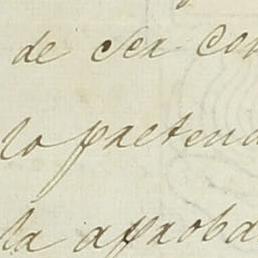 de ser con
lo pretend
la aproba